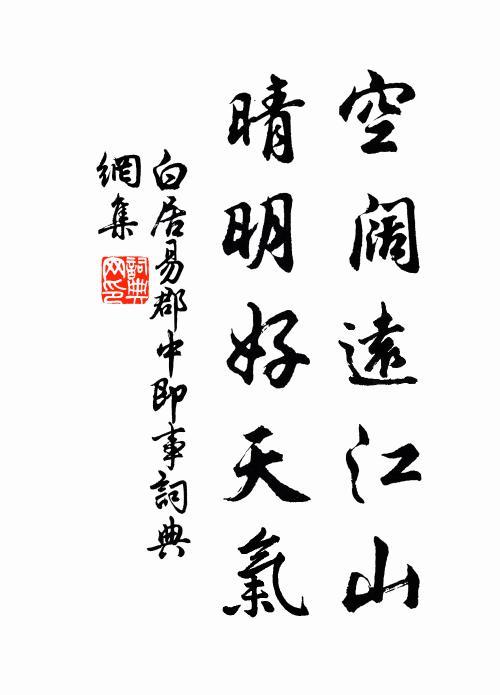 空阔遠江山
晴明好天氣
白居易郡中即事詞典
網集
詞典網印